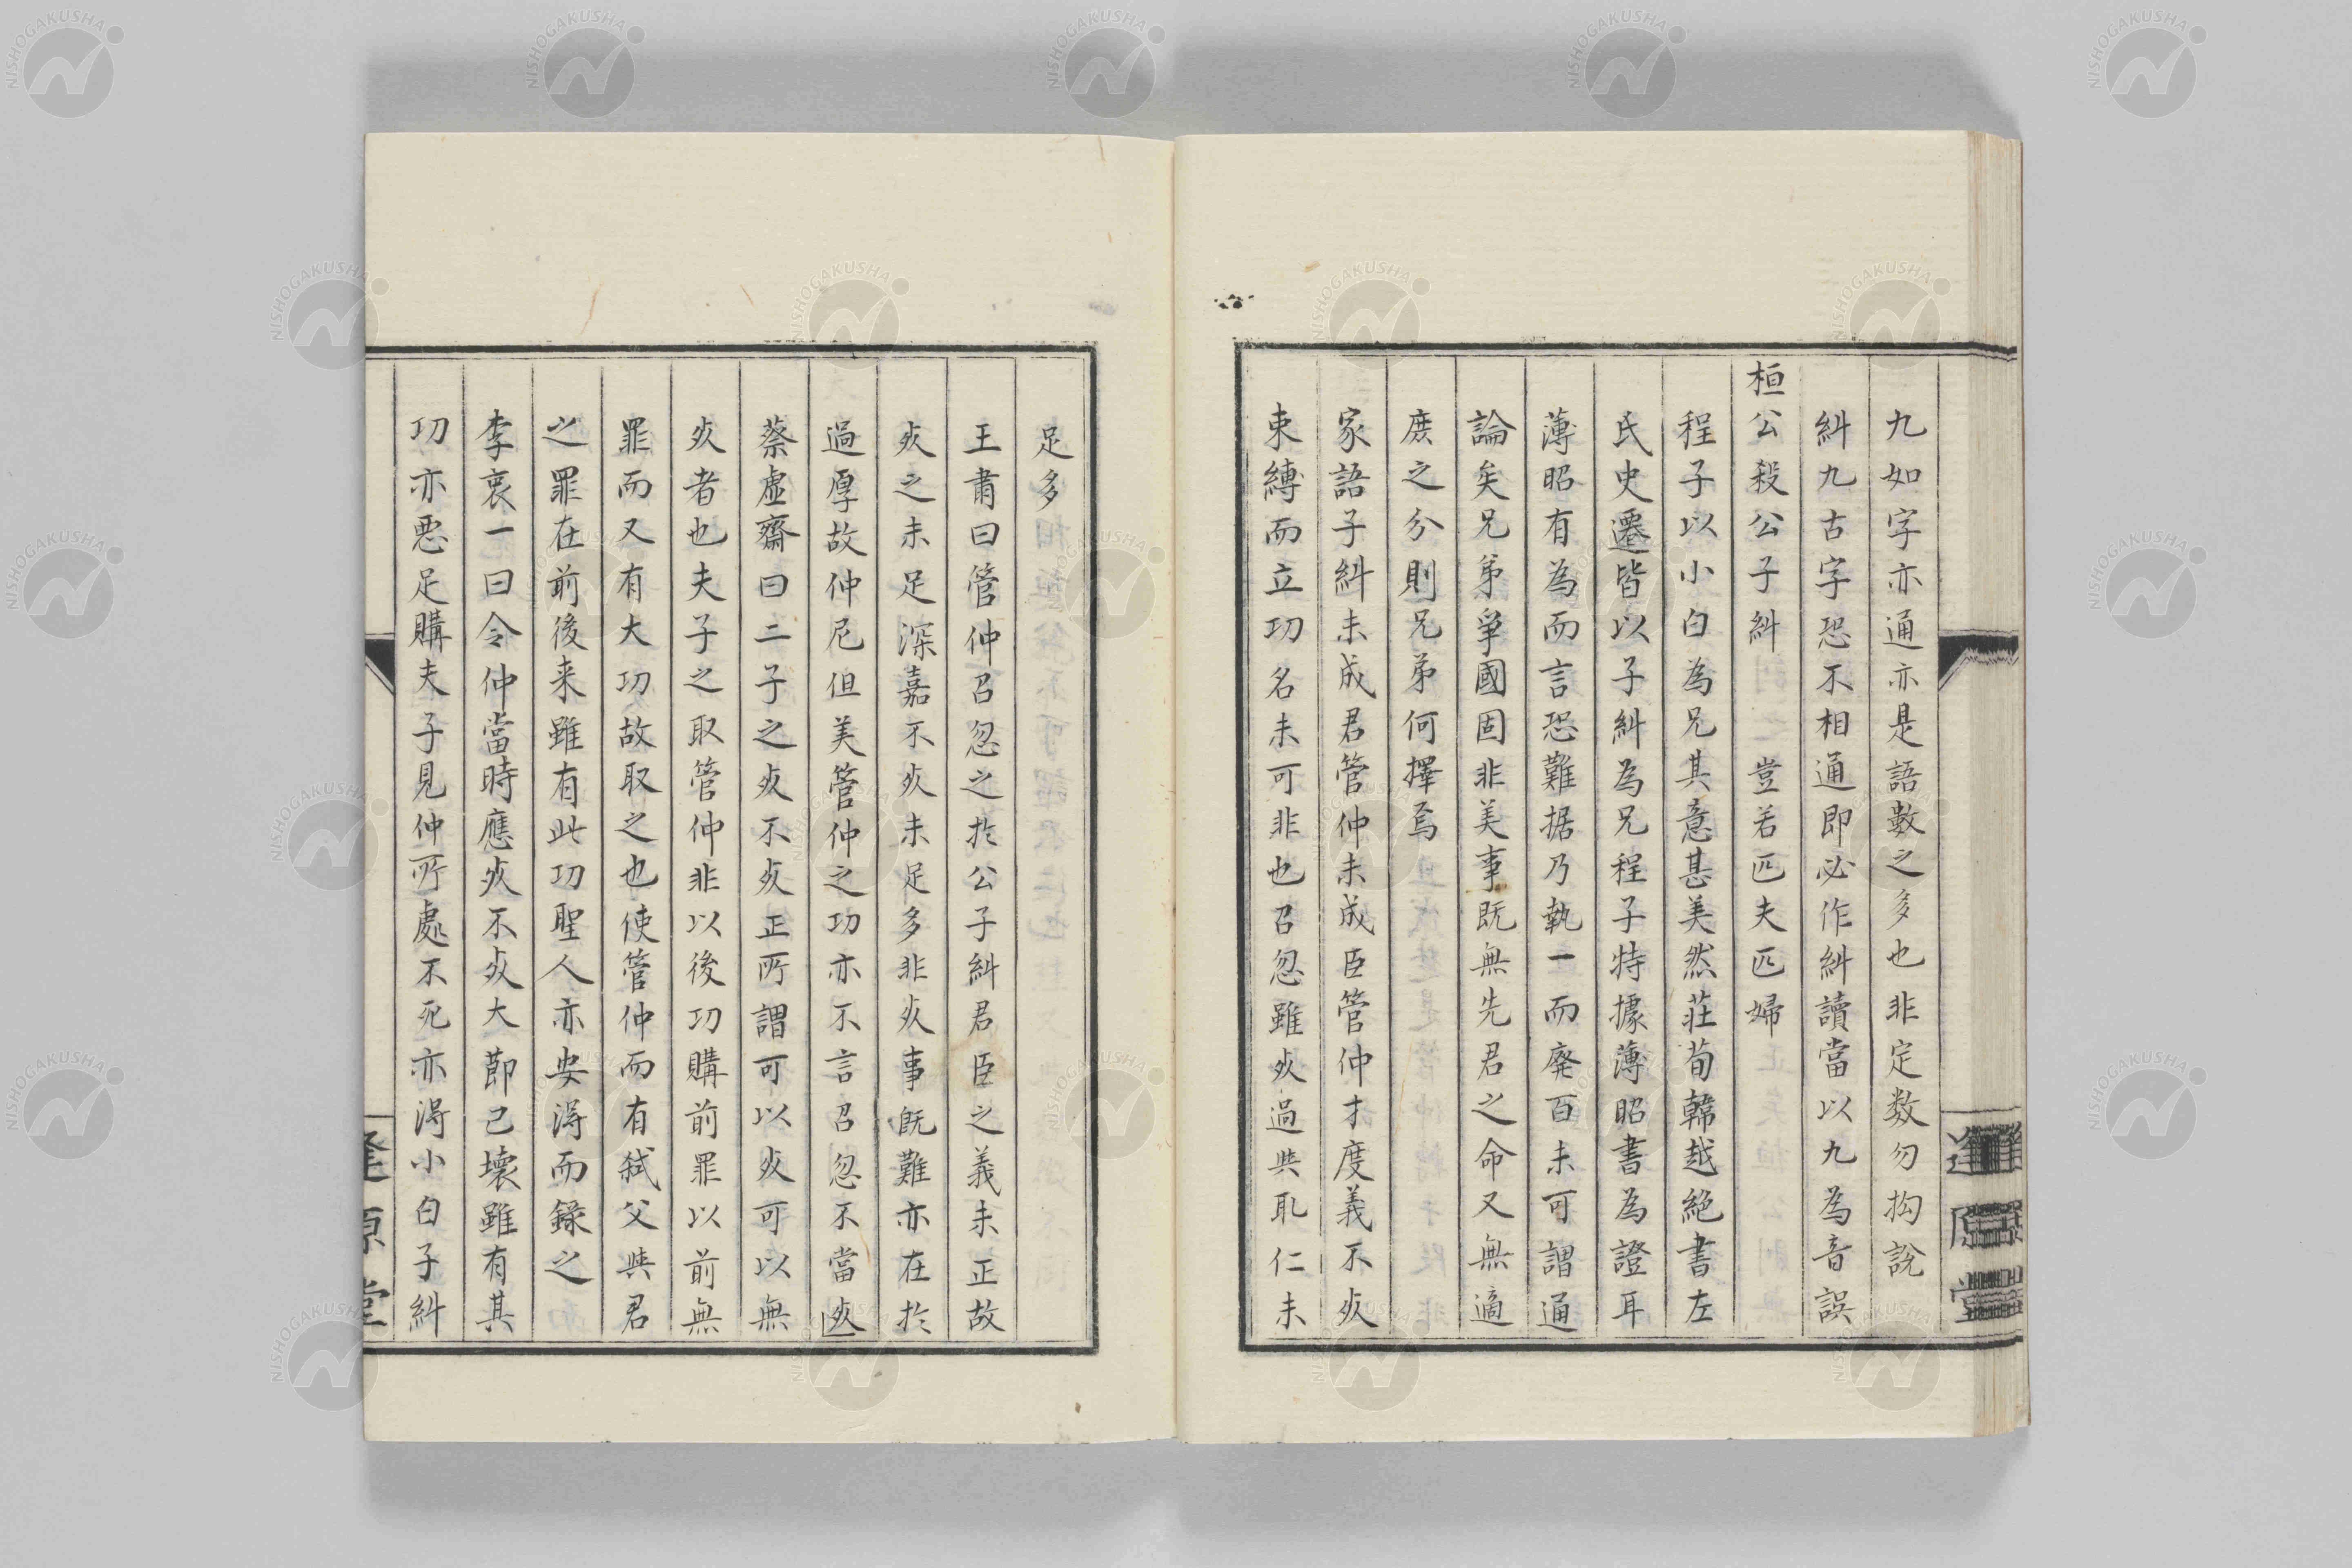 九如字亦通亦是語數之多也非定数勿拘說
糾九古字恐不相通即必作糾讀當以九為音誤
桓公殺公子糾　豈若匹夫匹婦
程子以小白為兄其意甚美然莊荀韓越絶書左
氏史遷皆以子糾為兄程子特據薄昭書為證耳
薄昭有為而言恐難据乃執一而廃百未可謂通
論矣兄弟爭國固非美事既無先君之命又無適
庶之分則兄弟何擇焉
家語子糾未成君管仲未成臣管仲才度義不死
束縛而立功名未可非也召忽雖死過與取仁未
足多
王肅曰管仲召忽之於公子糾君臣之義未正故
死之未足深嘉不死未足多非死事既難亦在於
過厚故仲尼但美管仲之功亦不言召忽不當死
蔡虛齋曰二子之死不死正所謂可以死可以無
死者也夫子之取管仲非以後功購前罪以前無
罪而又有大功故取之也使管仲而有弒父與君
之罪在前後来雖有此功聖人亦安淂而錄之
李衷一曰令仲當時應死不死大節已壞雖有其
功亦悪足購夫子見仲所處不死亦淂小白子糾
逢原堂
NISHOGAKUSHA